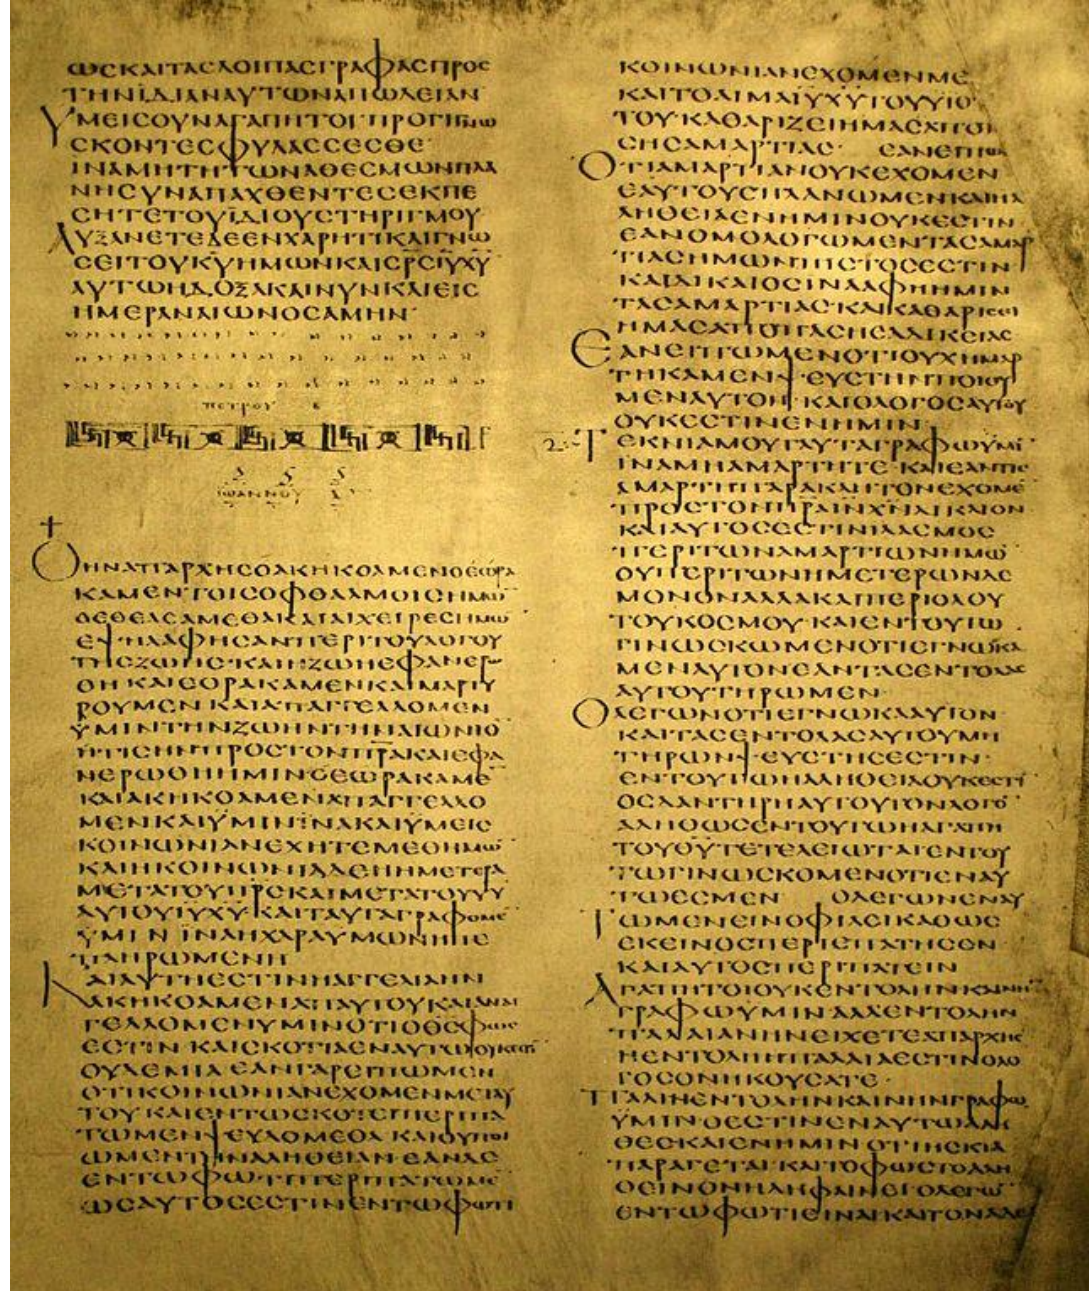 ΩΣΚΑΙΤΑΣΛΟΙΠΑΣΓΡΑΦΑΣΠΡΟΣ
ΤΗΝΪΔΙΑΝΑΥΤΩΝΑΠΩΛΕΙΑΝ
ΥΜΕΙΣΟΥΝΑΓΑΠΗΤΟΙΠΡΟΓΙΝΩ
ΣΚΟΝΤΕΣΦΥΛΑΣΣΕΣΘΕ
ΙΝΑΜΗΤΗΤΩΝΑΘΕΣΜΩΝΠΛΑ
ΝΗΣΥΝΑΠΑΧΘΕΝΤΕΣΕΚΠΕ
ΣΗΤΕΤΟΥΪΔΙΟΥΣΤΗΡΙΓΜΟΥ
ΑΥΞΑΝΕΤΕΔΕΕΝΧΑΡΗΤΙΚΑΙΓΝΩ
ΣΕΙΤΟΥΚΥΗΜΩΝΚΑΙΣΡΣΙΥΧΥ
ΑΥΤΩΗΔΟΞΑΚΑΙΝΥΝΚΑΙΕΙΣ
ΗΜΕΡΑΝΑΙΩΝΟΣΑΜΗΝ
ΠΕΤΡΟΥ Β
ΙΩΑΝΝΟΥ Α
ΟΗΝΑΠΑΡΧΗΣΟΑΚΗΚΟΑΜΕΝΟΕΩΡΑ
ΚΑΜΕΝΤΟΙΣΟΦΘΑΛΜΟΙΣΗΜΩ
ΟΕΘΕΑΣΑΜΕΘΑΚΑΙΑΙΧΕΙΡΕΣΗΜΩ
ΕΨΗΛΑΦΗΣΑΝΠΕΡΙΤΟΥΛΟΓΟΥ
ΤΗΣΖΩΗΣΚΑΙΗΖΩΗΕΦΑΝΕΡΩ
ΘΗΚΑΙΕΟΡΑΚΑΜΕΝΚΑΙΜΑΡΤΥ
ΡΟΥΜΕΝΚΑΙΑΠΑΓΓΕΛΛΟΜΕΝ
ΥΜΙΝΤΗΝΖΩΗΝΤΗΝΑΙΩΝΙΟ
ΗΤΙΣΗΝΠΡΟΣΤΟΝΠΡΑΚΑΙΕΦΑ
ΝΕΡΩΘΗΗΜΙΝΟΕΩΡΑΚΑΜΕ
ΚΑΙΑΚΗΚΟΑΜΕΝΑΠΑΓΓΕΛΛΟ
ΜΕΝΚΑΙΥΜΙΝΪΝΑΚΑΙΥΜΕΙΣ
ΚΟΙΝΩΝΙΑΝΕΧΗΤΕΜΕΘΗΜΩ
ΚΑΙΗΚΟΙΝΩΝΙΑΔΕΗΗΜΕΤΕΡΑ
ΜΕΤΑΤΟΥΠΡΣΚΑΙΜΕΤΑΤΟΥΥΥ
ΑΥΤΟΥΙΥΧΥΚΑΙΤΑΥΤΑΓΡΑΦΟΜΕ
ΥΜΙΝΪΝΑΗΧΑΡΑΥΜΩΝΗΠΕ
ΠΛΗΡΩΜΕΝΗ
ΚΑΙΑΥΤΗΕΣΤΙΝΗΑΓΓΕΛΙΑΗΝ
ΑΚΗΚΟΑΜΕΝΑΠΑΥΤΟΥΚΑΙΑΝΑΓ
ΓΕΛΛΟΜΕΝΥΜΙΝΟΤΙΟΘΣΦΩΣ
ΕΣΤΙΝΚΑΙΣΚΟΤΙΑΕΝΑΥΤΩΟΥΚΕΣΤΙ
ΟΥΔΕΜΙΑΕΑΝΓΑΡΕΙΠΩΜΕΝ
ΟΤΙΚΟΙΝΩΝΙΑΝΕΧΟΜΕΝΜΕΤΑΥ
ΤΟΥΚΑΙΕΝΤΩΣΚΟΤΕΙΠΕΡΙΠΑ
ΤΩΜΕΝΨΕΥΔΟΜΕΘΑΚΑΙΟΥΠΟΙ
ΩΜΕΝΤΗΝΑΛΗΘΕΙΑΝΕΑΝΔΕ
ΕΝΤΩΦΩΤΙΠΕΡΙΠΑΤΩΜΕ
ΩΣΑΥΤΟΣΕΣΤΙΝΕΝΤΩΦΩΤΙ
ΚΟΙΝΩΝΙΑΝΕΧΟΜΕΝΜΕ
ΚΑΙΤΟΑΙΜΑΙΥΧΥΤΟΥΥΙΟ
ΤΟΥΚΑΘΑΡΙΖΕΙΗΜΑΣΑΠΟΠ
ΣΗΣΑΜΑΡΤΙΑΣ ΕΑΝΕΙΠΩΜ
ΟΤΙΑΜΑΡΤΙΑΝΟΥΚΕΧΟΜΕΝ
ΕΑΥΤΟΥΣΠΛΑΝΩΜΕΝΚΑΙΗΑ
ΛΗΘΕΙΑΕΝΗΜΙΝΟΥΚΕΣΤΙΝ
ΕΑΝΟΜΟΛΟΓΩΜΕΝΤΑΣΑΜΑΡ
ΤΙΑΣΗΜΩΝΠΙΣΤΟΣΕΣΤΙΝ
ΚΑΙΔΙΚΑΙΟΣΙΝΑΑΦΗΗΜΙΝ
ΤΑΣΑΜΑΡΤΙΑΣΚΑΙΚΑΘΑΡΙΣΕΙ
ΗΜΑΣΑΠΟΠΑΣΗΣΑΔΙΚΕΙΑΣ
ΕΑΝΕΙΠΩΜΕΝΟΤΙΟΥΧΗΜΑΡ
ΤΗΚΑΜΕΝΨΕΥΣΤΗΝΠΟΙΟΥ
ΜΕΝΑΥΤΟΝΚΑΙΟΛΟΓΟΣΑΥΤΟΥ
ΟΥΚΕΣΤΙΝΕΝΗΜΙΝ
ΤΕΚΝΙΑΜΟΥΤΑΥΤΑΓΡΑΦΩΥΜΙ
ΪΝΑΜΗΑΜΑΡΤΗΤΕΚΑΙΕΑΝΤΙΣ
ΑΜΑΡΤΗΠΑΡΑΚΛΗΤΟΝΕΧΟΜΕ
ΠΡΟΣΤΟΝΠΡΑΙΝΧΝΔΙΚΑΙΟΝ
ΚΑΙΑΥΤΟΣΕΣΤΙΝΙΛΑΣΜΟΣ
ΠΕΡΙΤΩΝΑΜΑΡΤΙΩΝΗΜΩ
ΟΥΠΕΡΙΤΩΝΗΜΕΤΕΡΩΝΔΕ
ΜΟΝΟΝΑΛΛΑΚΑΙΠΕΡΙΟΛΟΥ
ΤΟΥΚΟΣΜΟΥΚΑΙΕΝΤΟΥΤΩ
ΓΙΝΩΣΚΩΜΕΝΟΤΙΕΓΝΩΚΑ
ΜΕΝΑΥΤΟΝΕΑΝΤΑΣΕΝΤΟΛΑΣ
ΑΥΤΟΥΤΗΡΩΜΕΝ
ΟΛΕΓΩΝΟΤΙΕΓΝΩΚΑΑΥΤΟΝ
ΚΑΙΤΑΣΕΝΤΟΛΑΣΑΥΤΟΥΜΗ
ΤΗΡΩΝΨΕΥΣΤΗΣΕΣΤΙΝ
ΕΝΤΟΥΤΩΗΑΛΗΘΕΙΑΟΥΚΕΣΤΙ
ΟΣΔΑΝΤΗΡΗΑΥΤΟΥΤΟΝΛΟΓΟ
ΑΛΗΘΩΣΕΝΤΟΥΤΩΗΑΓΑΠΗ
ΤΟΥΘΥΤΕΤΕΛΕΙΩΤΑΙΕΝΤΟΥ
ΤΩΓΙΝΩΣΚΟΜΕΝΟΤΙΕΝΑΥ
ΤΩΕΣΜΕΝ ΟΛΕΓΩΝΕΝΑΥ
ΤΩΜΕΝΕΙΝΟΦΙΛΕΙΚΑΘΩΣ
ΕΚΕΙΝΟΣΠΕΡΙΕΠΑΤΗΣΕΝ
ΚΑΙΑΥΤΟΣΠΕΡΙΠΑΤΕΙΝ
ΑΓΑΠΗΤΟΙΟΥΚΕΝΤΟΛΗΝΚΑΙΝΗ
ΓΡΑΦΩΥΜΙΝΑΛΛΕΝΤΟΛΗΝ
ΠΑΛΑΙΑΝΗΝΕΙΧΕΤΕΑΠΑΡΧΗΣ
ΗΕΝΤΟΛΗΗΠΑΛΑΙΑΕΣΤΙΝΟΛΟ
ΓΟΣΟΝΗΚΟΥΣΑΤΕ
ΠΑΛΙΝΕΝΤΟΛΗΝΚΑΙΝΗΝΓΡΑΦΩ
ΥΜΙΝΟΕΣΤΙΝΕΝΑΥΤΩΑΛΗ
ΘΕΣΚΑΙΕΝΗΜΙΝΟΤΙΗΣΚΙΑ
ΠΑΡΑΓΕΤΑΙΚΑΙΤΟΦΩΣΤΟΑΛΗ
ΘΕΙΝΟΝΗΔΗΦΑΙΝΕΙΟΛΕΓΩ
ΕΝΤΩΦΩΤΙΕΙΝΑΙΚΑΙΤΟΝΑΔΕ